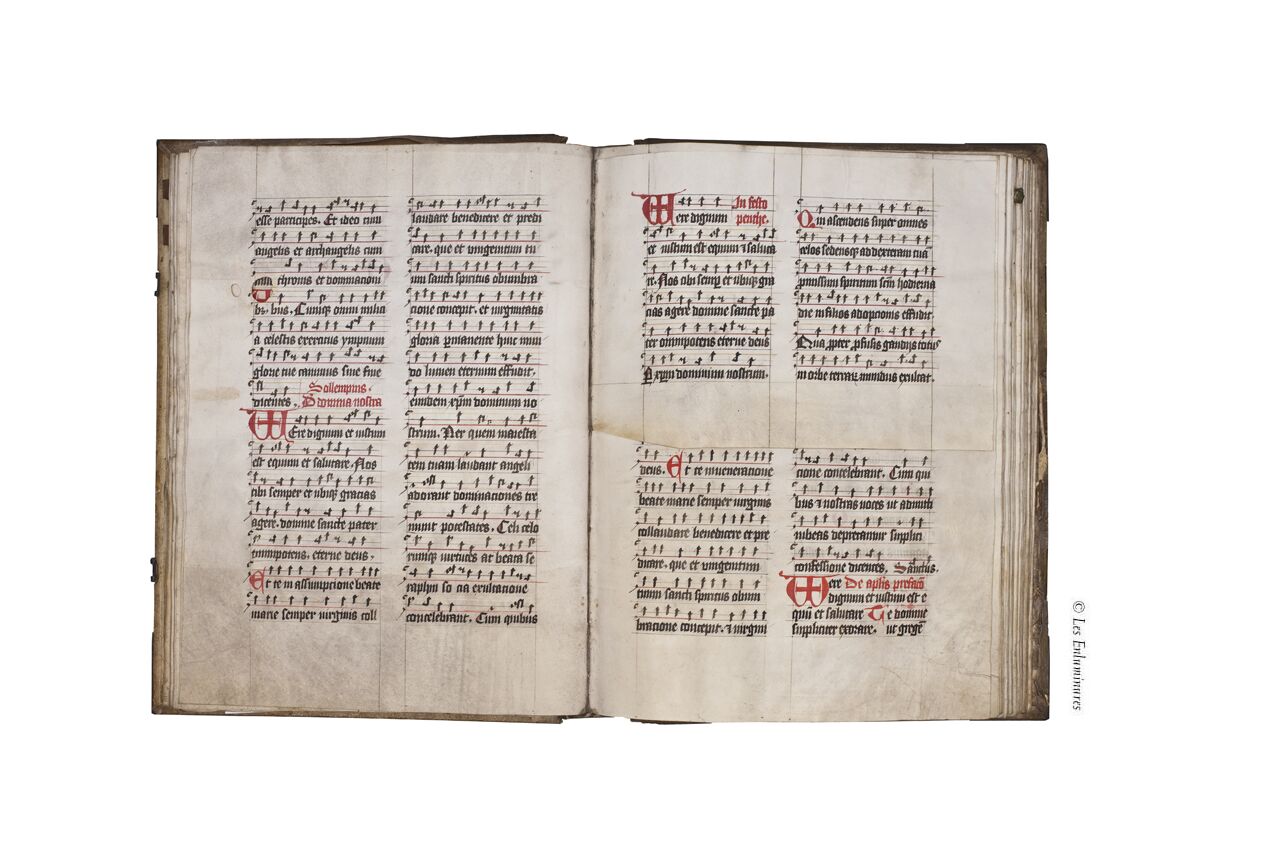 esse participes. Et ideo cum
angelis et archangelis cum
cum thronis et dominacioni
bus. Cumq; omni milici
a celestis exercitus ympnum
glorie tue canimus sine fine
dicentes. Sollempnis.
D domina nostra
Vere dignum et iustum
est equum et salutare. Nos
tibi semper et ubiq; gracias
agere. domine sancte pater
omnipotens. eterne deus.
Et te in assumpcione beate
marie semper virginis coll
laudare benedicere et predi
care. que et unigenitum tu
um sancti spiritus obumbra
cione concepit. et virginitatis
gloria permanente huic mun
do lumen eternum effudit.
eiundem xpm dominum no
strum. Per quem maiesta
tem tuam laudant angeli
adorant dominaciones tre
munt potestates. Celi celo
rumq; virtutes ac beata se
raphin so cia exultacione
concelebrant. Cum quibus
Vere dignum In festo
penthe.
et iustum est equum et saluta
re. Nos tibi semper et ubiq; gra
cias agere domine sancte pa
ter omnipotens eterne deus
Per xpm dominum nostrum.
Qui ascendens super omnes
celos sedensq; ad dexteram tua
promissum spiritum sctm hodierna
die in filios adopcionis effudit.
Qua propter profusis gaudiis totus
in orbe terrarum mundus exultat.
deus. Et te in veneracione
beate marie semper virginis
collaudare benedicere et pre
dicare. que et unigenitum
tuum sancti spiritus obum
bracione concepit. et virgini
cione concelebrant. Cum qui
bus et nostras voces ut admitti
iubeas deprecamur supplici
confessione dicentes. Sanctus.
Vere De aplis prefacio
dignum et iustum est e
quum et salutare Te domine
suppliciter exorare. ut gregem
© Les Enluminures